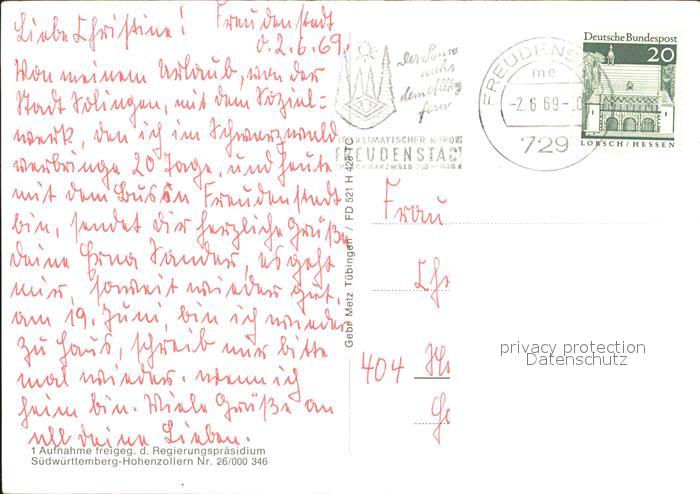 Liebe Christine! Freudenstadt
d. 2.6.69.
Von meinem Urlaub, von der
Stadt Solingen, mit dem Sozial=
werk, den ich im Schwarzwald
verbringe 20 Tage, und heute
mit dem Bus in Freudenstadt
bin, sendet dir herzliche Grüße
deine Erna Sander, es geht
mir, soweit wieder gut.
am 19. Juni, bin ich wieder
zu Haus, schreib mir bitte
mal wieder. wenn ich
heim bin. Viele Grüße an
all deine Lieben.
1 Aufnahme freigeg. d. Regierungspräsidium
Südwürttemberg-Hohenzollern Nr. 26/000 346
Gebr. Metz Tübingen / FD 521 H 428 TC
Der Sonne
nahe
dem Alltag
fern
HEILKLIMATISCHER KURORT
FREUDENSTADT
SCHWARZWALD
FREUDENST
me
-2.6.69-
729
Deutsche Bundespost
20
LORSCH/HESSEN
Frau
Chr
404
privacy protection
Datenschutz